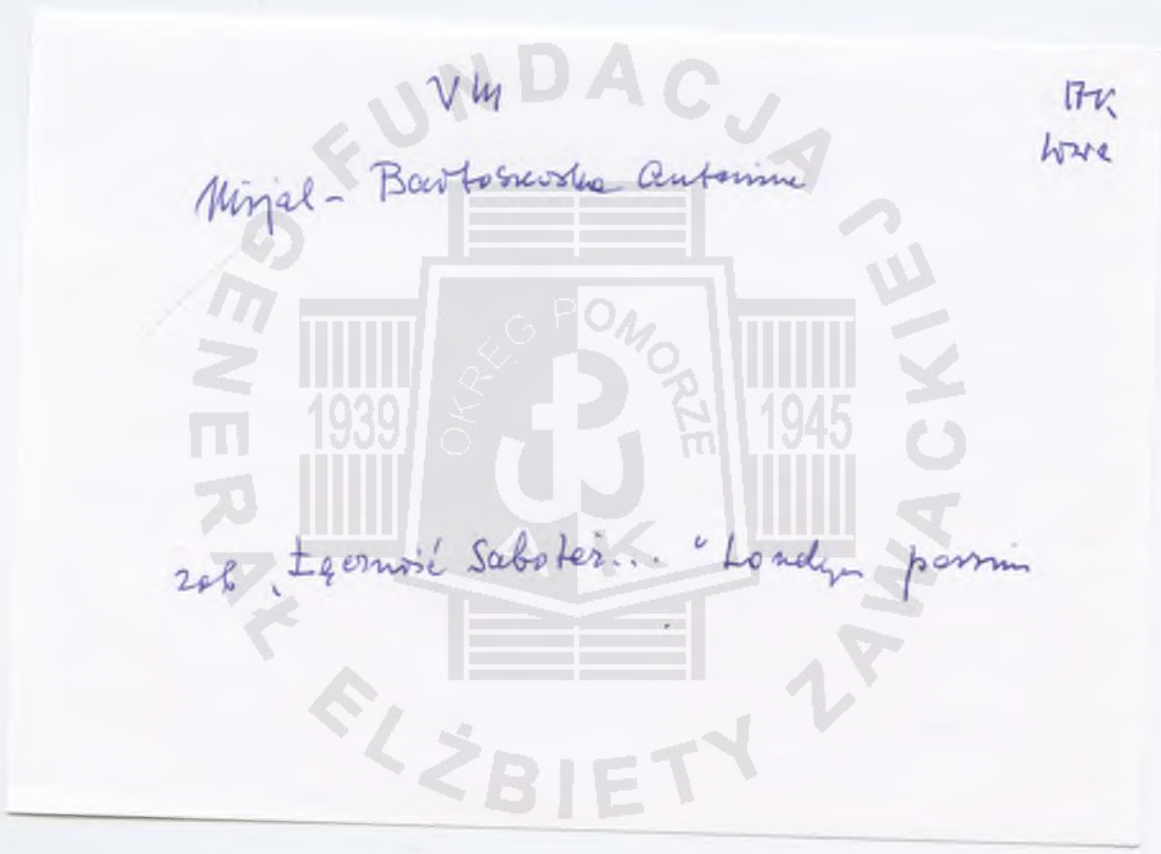 VM
Misjal - Bartoszewska Antonina
zob. „Łączność Sabotaż..." Londyn passim
FUNDACJA
GENERAŁ ELŻBIETY ZAWACKIEJ
OKRĘG POMORZE
1939
1945
AK